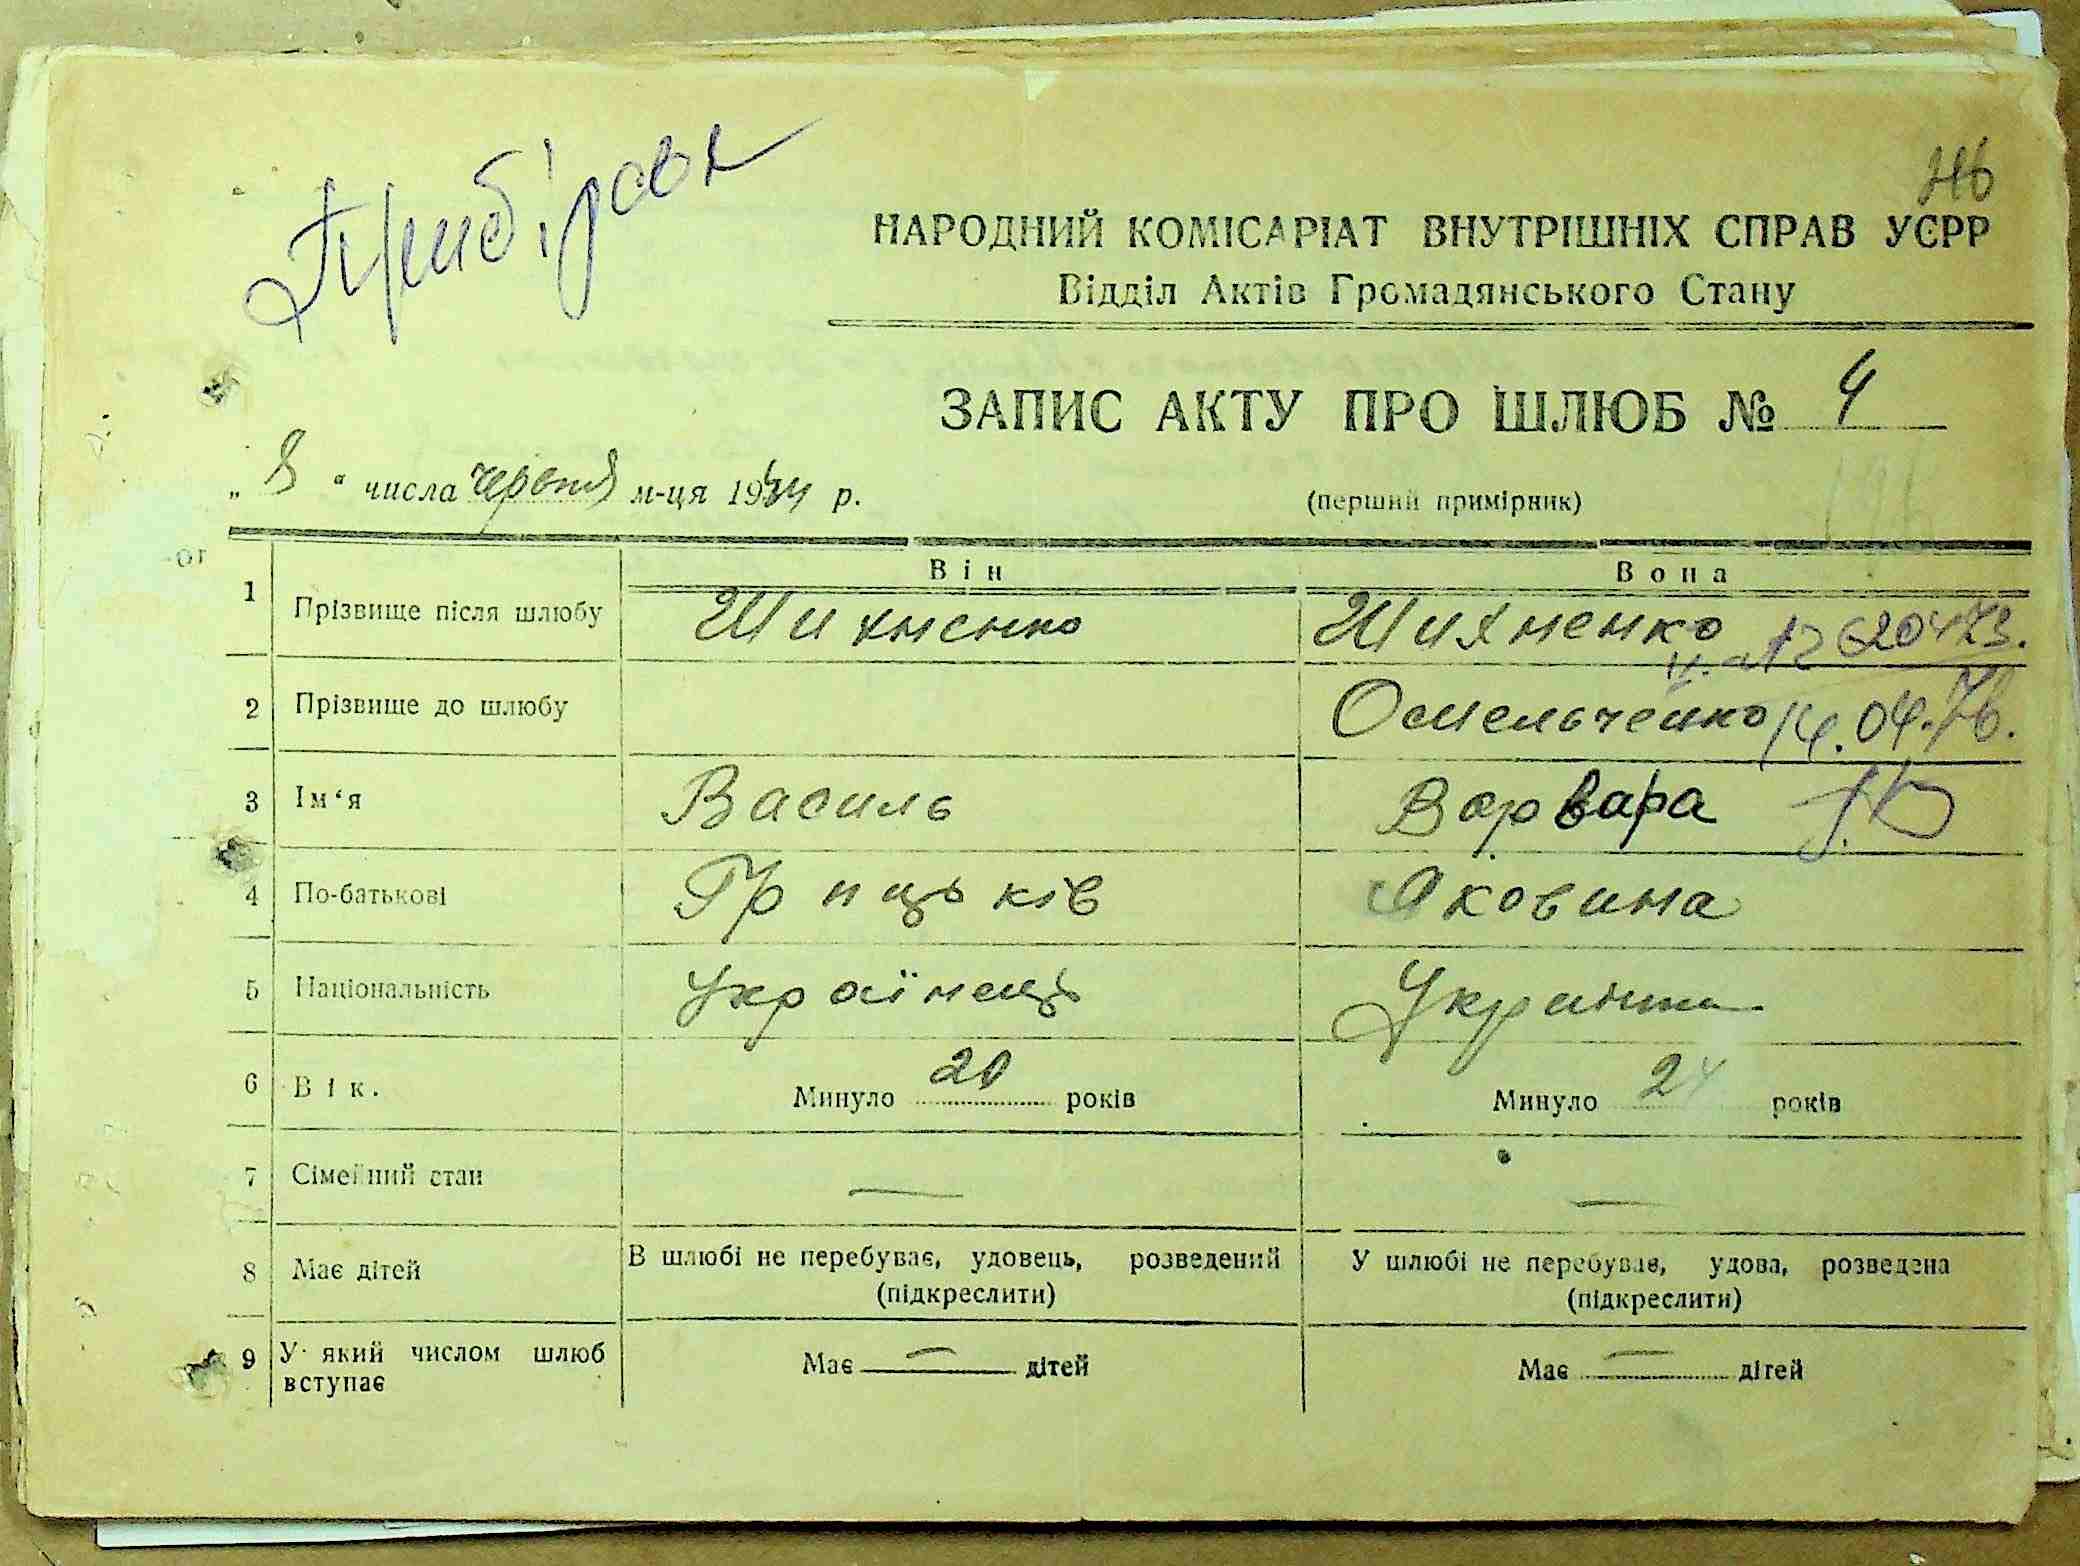 Прибірськ
НАРОДНИЙ КОМІСАРІАТ ВНУТРІШНІХ СПРАВ УСРР
Відділ Актів Громадянського Стану
ЗАПИС АКТУ ПРО ШЛЮБ № 4
„ 8 “ числа червня м-ця 1944 р.
(перший примірник)
Він Вона
1 Прізвище після шлюбу Шихненко Шихненко
2 Прізвище до шлюбу Омельченко 14.04.76.
3 Ім‘я Василь Варвара
4 По-батькові Грицьків Яковина
5 Національність Українець Українка
6 Вік. Минуло 20 років Минуло 24 років
7 Сімейний стан — —
8 Має дітей В шлюбі не перебуває, удовець, розведений У шлюбі не перебуває, удова, розведена
(підкреслити) (підкреслити)
9 У який числом шлюб вступає Має — дітей Має — дітей